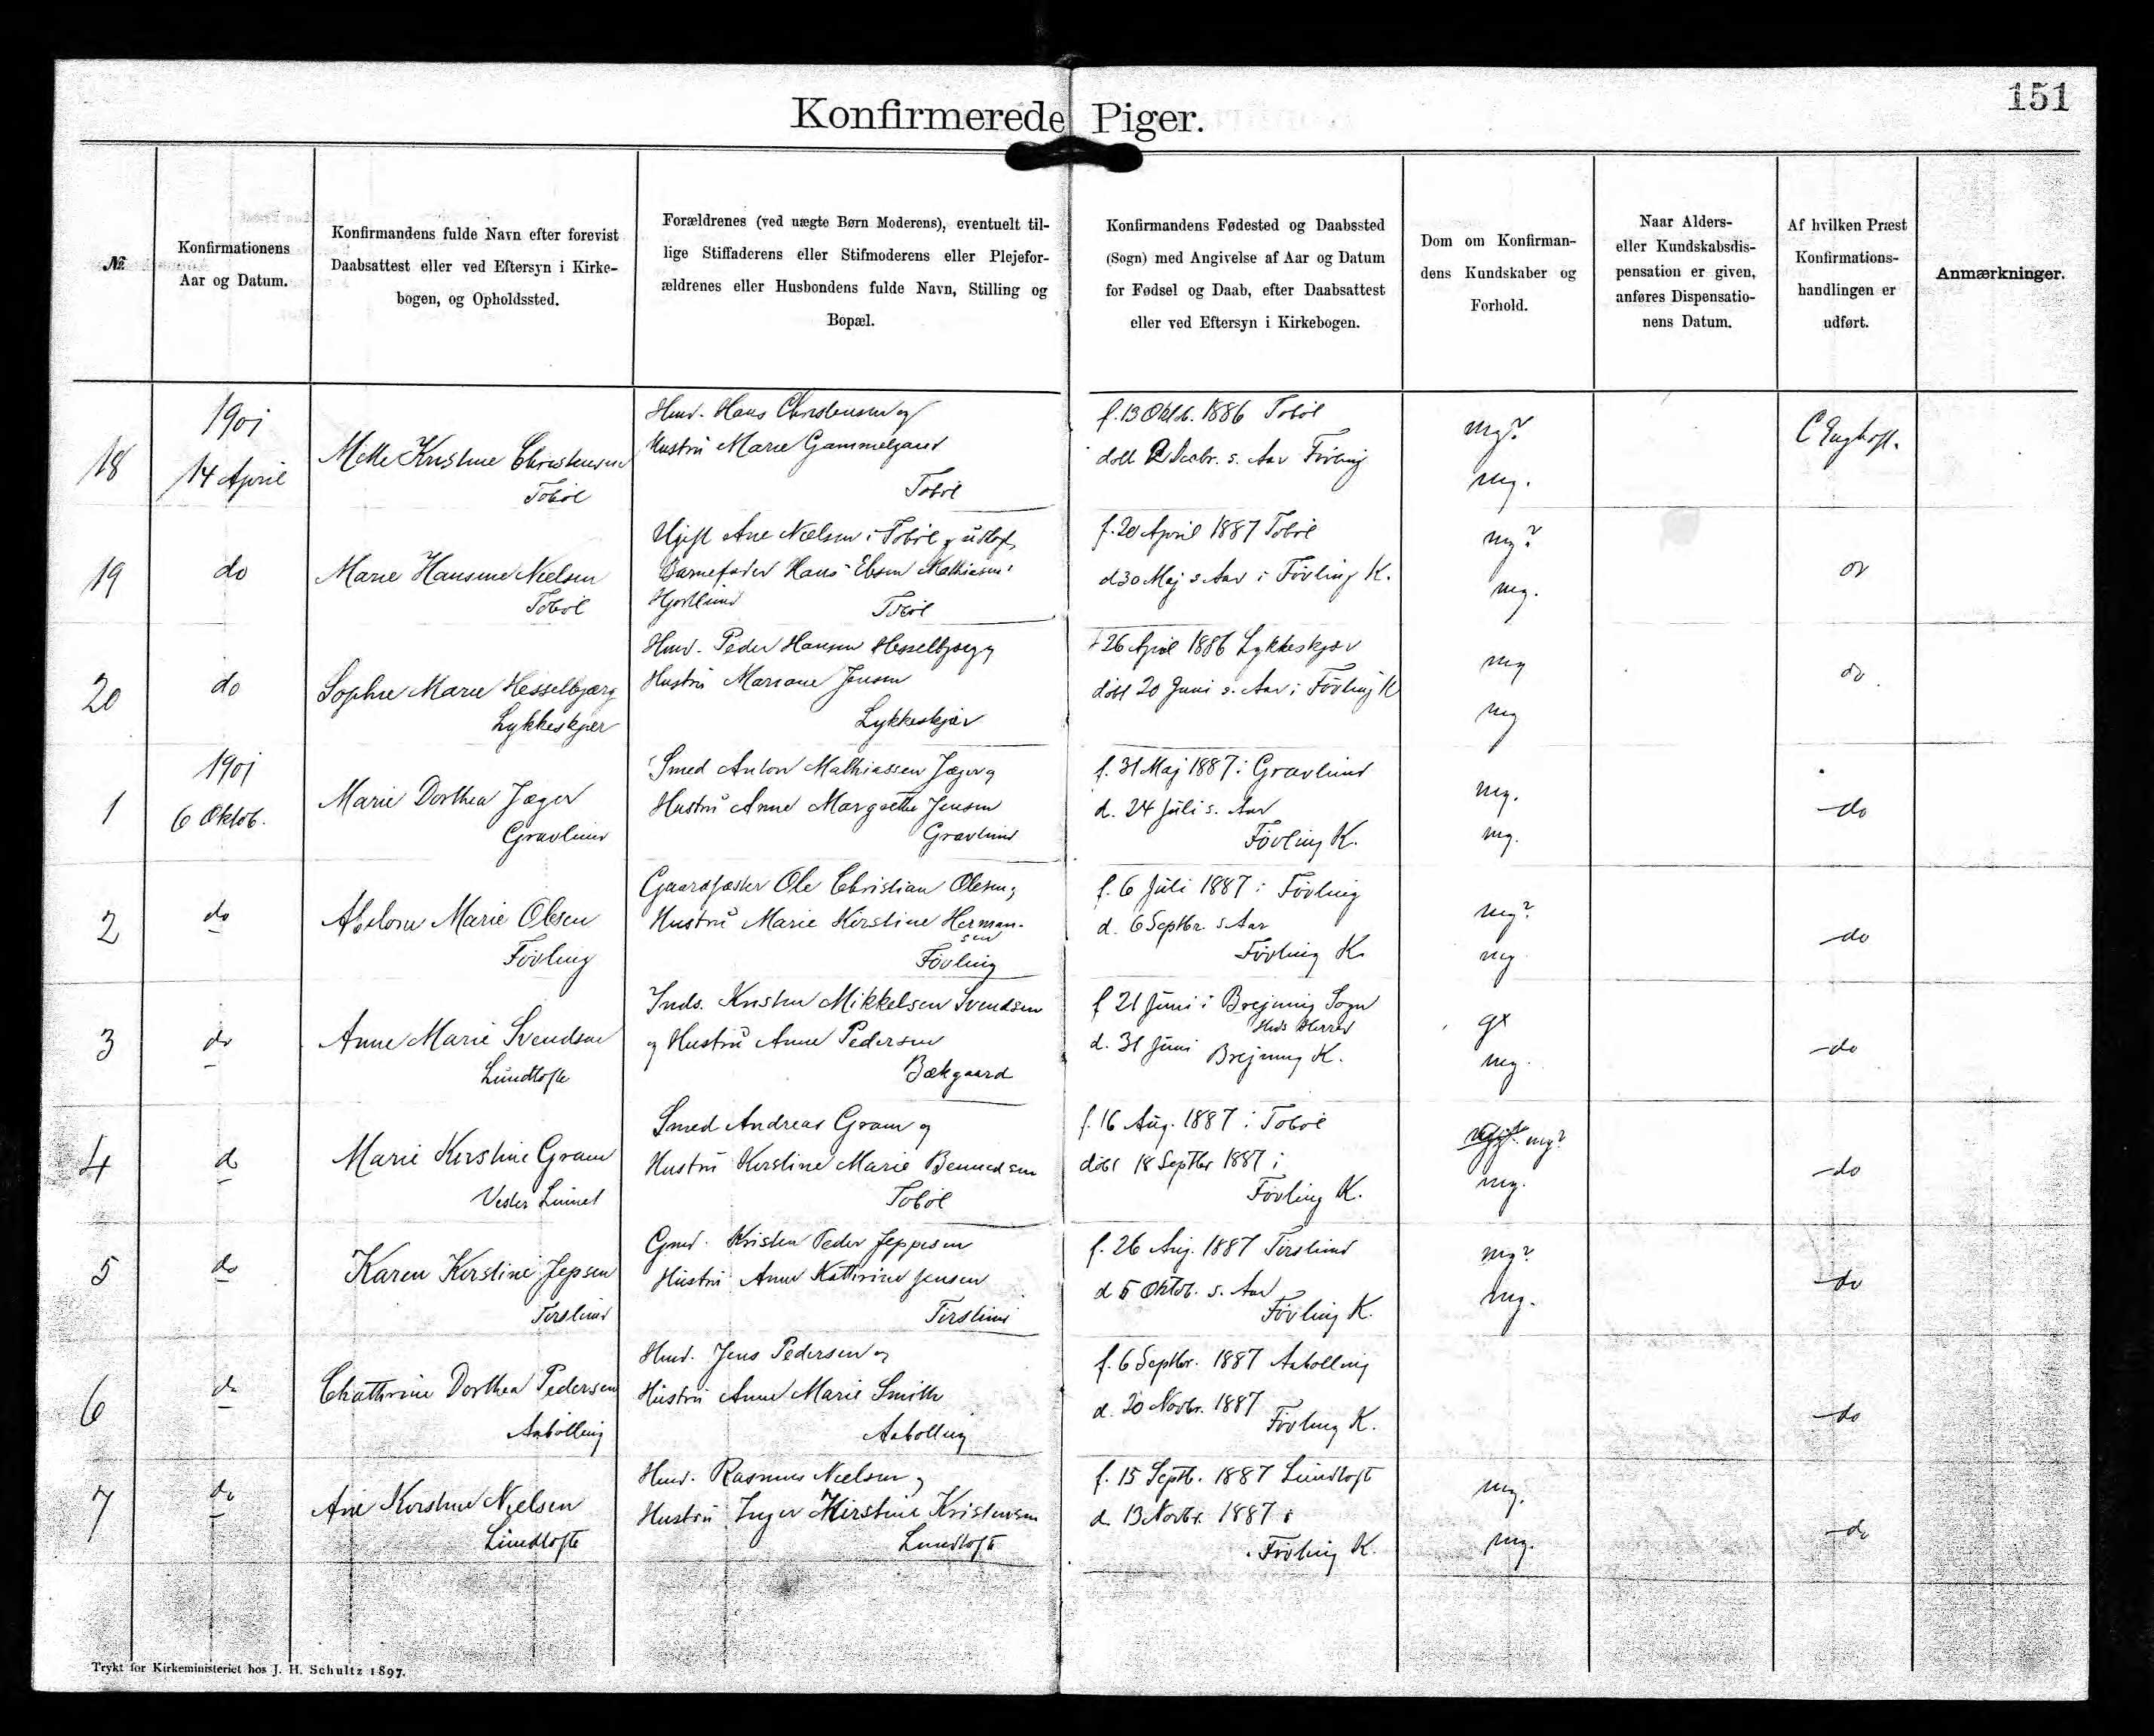 151
Konfirmerede Piger.
№
Konfirmationens
Aar og Datum.
Konfirmandens fulde Navn efter forevist
Daabsattest eller ved Eftersyn i Kirke-
bogen, og Opholdssted.
Forældrenes (ved uægte Børn Moderens), eventuelt til-
lige Stiffaderens eller Stifmoderens eller Plejefor-
ældrenes eller Husbondens fulde Navn, Stilling og
Bopæl.
Konfirmandens Fødested og Daabssted
(Sogn) med Angivelse af Aar og Datum
for Fødsel og Daab, efter Daabsattest
eller ved Eftersyn i Kirkebogen.
Dom om Konfirman-
dens Kundskaber og
Forhold.
Naar Alders-
eller Kundskabsdis-
pensation er given,
anføres Dispensatio-
nens Datum.
Af hvilken Præst
Konfirmations-
handlingen er
udført.
Anmærkninger.
18
1901
14 April
Mette Kristine Christensen
Tobøl
Hmd. Hans Christensen og
Hustru Marie Gammelgaard
Tobøl
f. 13 Oktb. 1886 Tobøl
døbt 2 Decbr. s. Aar Føvling
mg?
mg.
C Enghoff.
19
do
Marie Hansine Nielsen
Tobøl
Ugift Ane Nielsen i Tobøl & udlagt
Barnefader Hans Ebsen Mathiasen
Hjortlund
Tobøl
f. 20 April 1887 Tobøl
d 30 Maj s Aar i Føvling K.
mg?
mg.
do
20
do
Sophie Marie Hesselbjerg
Lykkeskjær
Hmd. Peder Hansen Hesselbjerg og
Hustru Mariane Jensen
Lykkeskjær
f 26 April 1886 Lykkeskjær
døbt 20 Juni s. Aar i Føvling K
mg
mg
do
1
1901
6 Oktob.
Marie Dorthea Jæger
Gravlund
Smed Anton Mathiassen Jæger og
Hustru Anne Margrethe Jensen
Gravlund
f. 31 Maj 1887 i Gravlund
d. 24 Juli s. Aar
Føvling K.
mg.
mg.
do
2
do
Abelone Marie Olesen
Føvling
Gaardfæster Ole Christian Olesen og
Hustru Marie Kirstine Herman-
sen
Føvling
f. 6 Juli 1887 i Føvling
d. 6 Septbr. s Aar
Føvling K.
mg?
mg
do
3
do
Anne Marie Svendsen
Lundtofte
Inds. Kristen Mikkelsen Svendsen
og Hustru Anne Pedersen
Bækgaard
f 21 Juni i Brejning Sogn
Hids Herred
d. 31 Juni Brejning K.
gx
mg.
do
4
d
Marie Kirstine Gram
Vester Linnet
Smed Andreas Gram og
Hustru Kirstine Marie Bennedsen
Tobøl
f. 16 Aug. 1887 i Tobøl
døbt 18 Septbr 1887 i
Føvling K.
mg?
mg.
do
5
do
Karen Kirstine Jepsen
Terslund
Gmd. Kristen Peder Jeppesen
Hustru Anne Kathrine Jensen
Terslund
f. 26 Aug. 1887 Terslund
d 5 Oktob. s. Aar
Føvling K.
mg?
mg.
do
6
do
Chathrine Dorthea Pedersen
Aabølling
Hmd. Jens Pedersen og
Hustru Anne Marie Smith
Aabølling
f. 6 Septbr. 1887 Aabølling
d. 20 Novbr. 1887
Føvling K.
do
7
do
Ane Kirstine Nielsen
Lundtofte
Hmd. Rasmus Nielsen og
Hustru Inger Kirstine Kristensen
Lundtofte
f. 15 Septb. 1887 Lundtoft
d. 13 Novbr. 1887 i
Føvling K.
mg.
mg.
do
Trykt for Kirkeministeriet hos J. H. Schultz 1897.